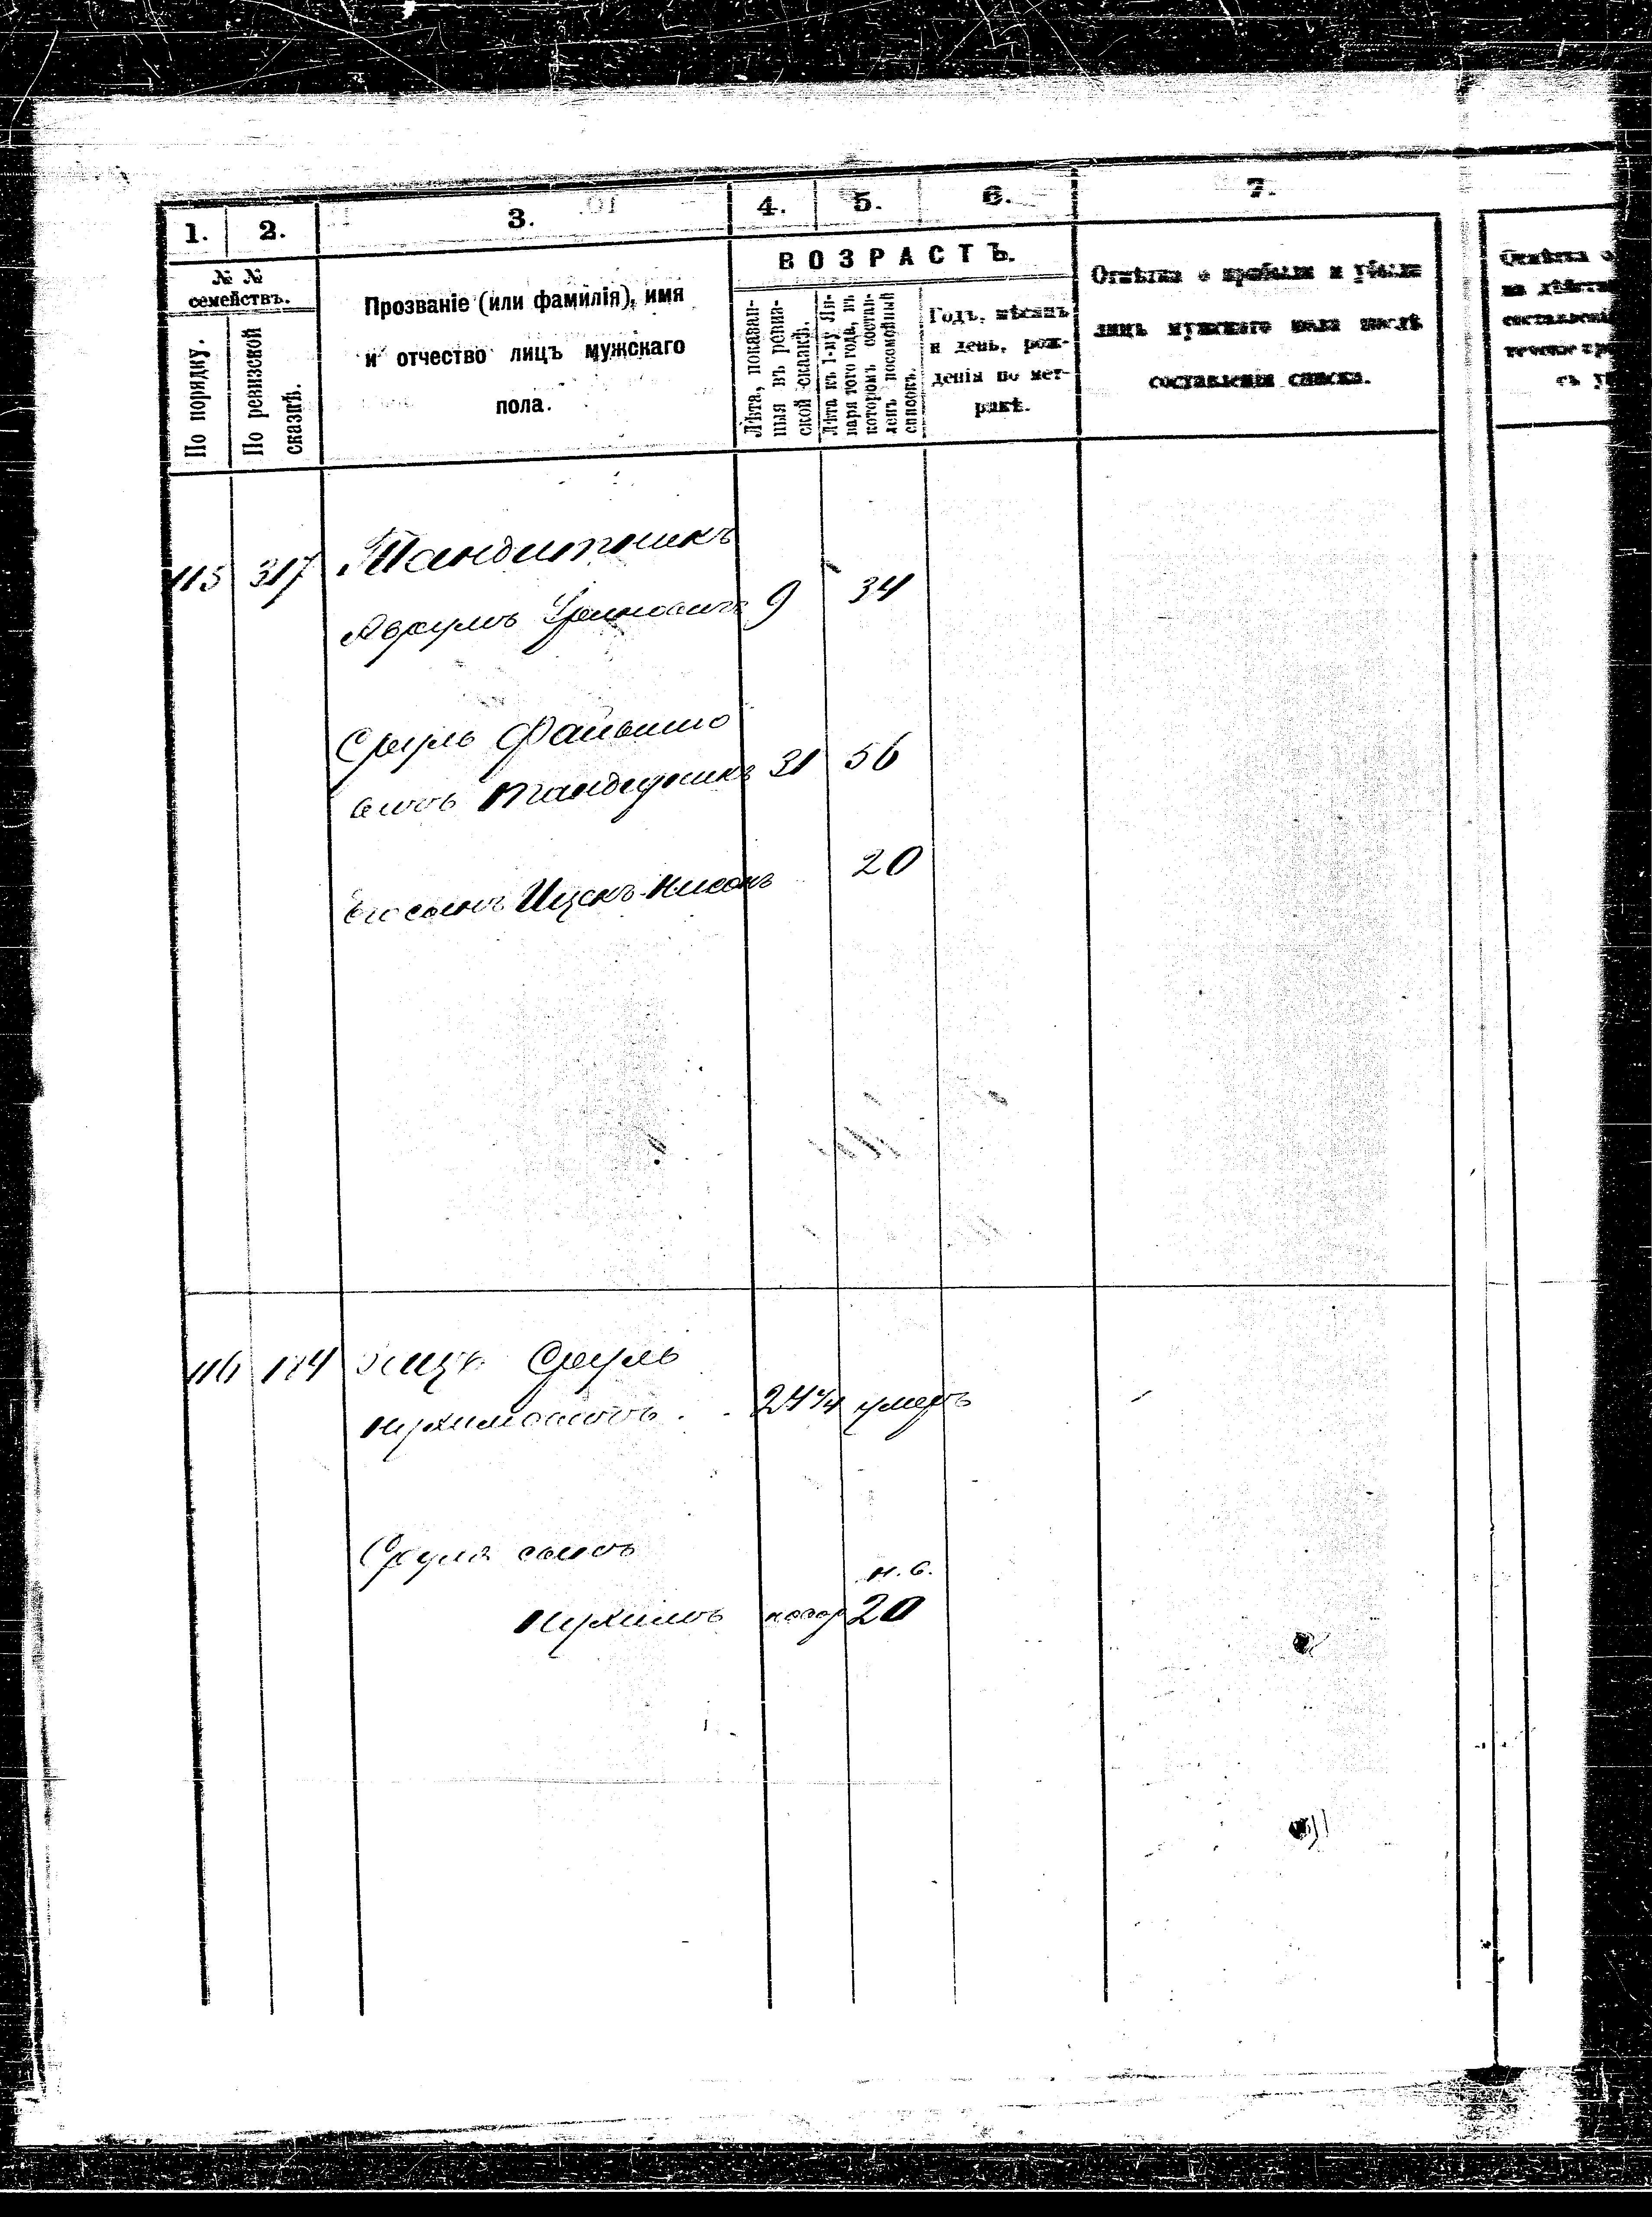 1. 2. 3. 4. 5. 6. 7.
№ №
семействъ.
По порядку.
По ревизской
сказкѣ.
Прозваніе (или фамилія), имя
и отчество лицъ мужскаго
пола.
ВОЗРАСТЪ.
Лѣта, показан-
ныя въ ревиз-
ской сказкѣ.
Лѣта къ 1-му Ян-
варя того года, въ
которомъ состав-
ленъ посемейный
списокъ.
Годъ, мѣсяцъ
и день, рож-
денія по мет-
рикѣ.
Отмѣтка о прибыли и убыли
лицъ мужскаго пола послѣ
составленія списка.
115 317 Тандитникъ
Аврумъ 9 34
Сруль Файвишо
вичъ Тандетникъ 31 56
Его сынъ Ицекъ-Нисонъ 20
116 Сруль
Нухимовичъ 24 ¼ умеръ
Сруля сынъ
Нухимъ 20